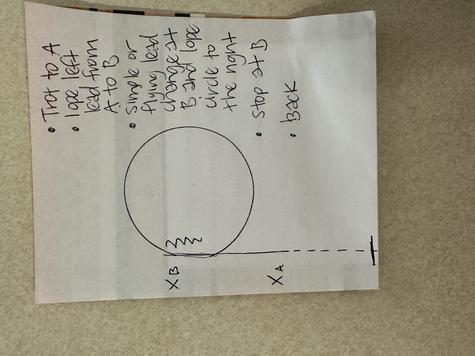 • Trot to A
• lope left
lead from
A to B
• Simple or
flying lead
change at
B and lope
circle to
the right
• Stop at B
• Back
X B
X A